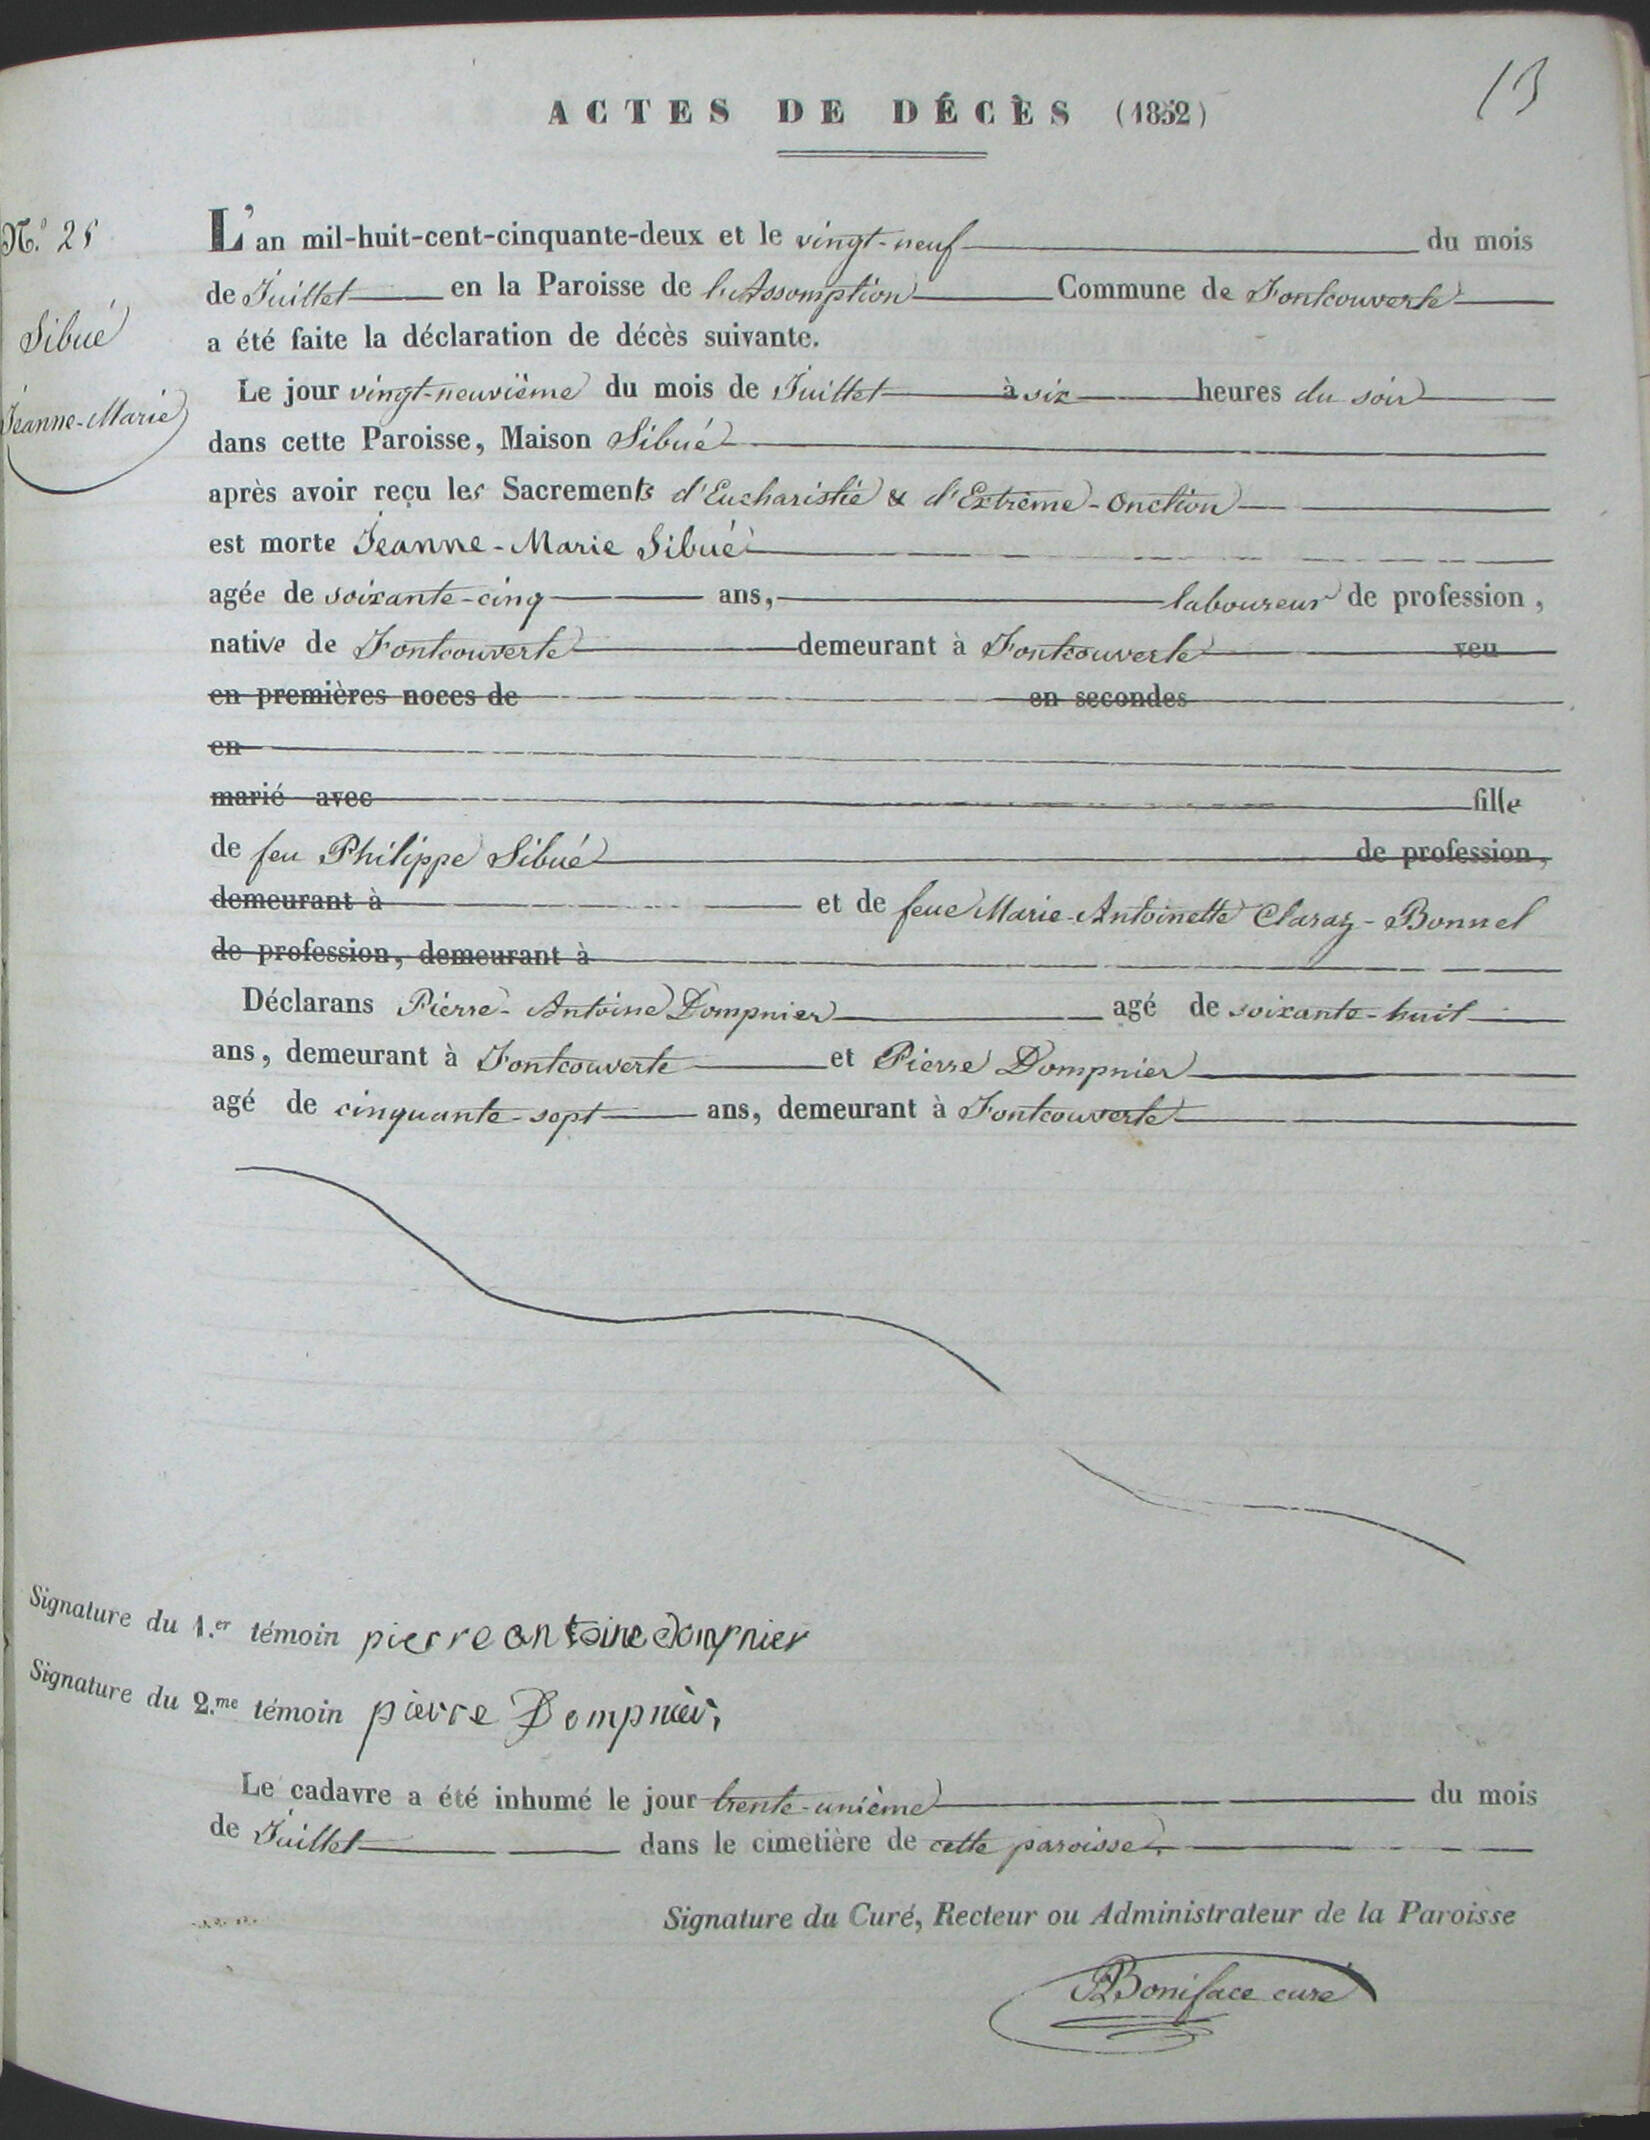 13
ACTES DE DÉCÈS (1852)
N.º 25
Sibué
Jeanne-Marie
L'an mil-huit-cent-cinquante-deux et le vingt-neuf du mois
de Juillet en la Paroisse de l'Assomption Commune de Fontcouverte
a été faite la déclaration de décès suivante.
Le jour vingt-neuvième du mois de Juillet à six heures du soir
dans cette Paroisse, Maison Sibué
après avoir reçu les Sacrements d'Eucharistie & d'Extrême-Onction
est morte Jeanne-Marie Sibué
agée de soixante-cinq ans, laboureur de profession,
native de Fontcouverte demeurant à Fontcouverte veu
en premières noces de en secondes
en
marié avec fille
de feu Philippe Sibué de profession,
demeurant à et de feue Marie-Antoinette Claraz-Bonnel
de profession, demeurant à
Déclarans Pierre-Antoine Dompnier agé de soixante-huit
ans, demeurant à Fontcouverte et Pierre Dompnier
agé de cinquante-sept ans, demeurant à Fontcouverte
Signature du 1.er témoin pierre antoine dompnier
Signature du 2.me témoin pierre Dompnier,
Le cadavre a été inhumé le jour trente-unième du mois
de Juillet dans le cimetière de cette paroisse.
Signature du Curé, Recteur ou Administrateur de la Paroisse
Boniface curé